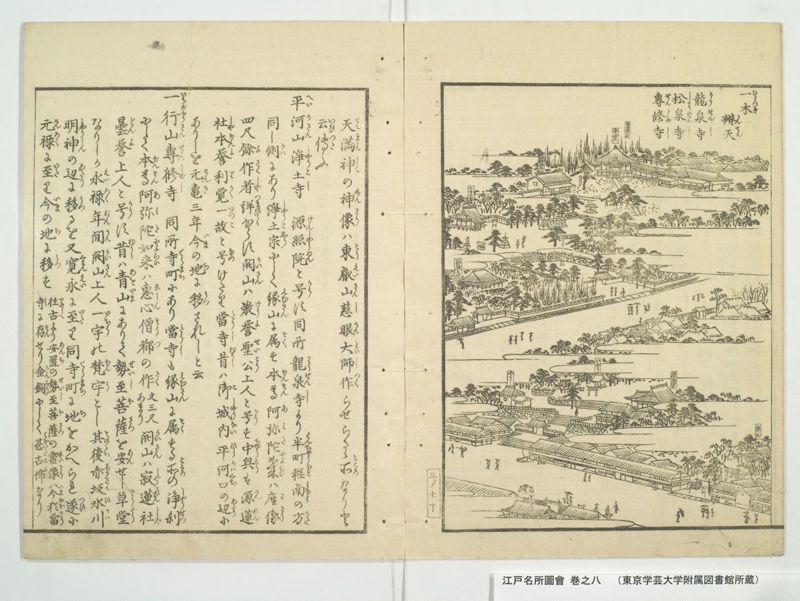 一木
龍泉寺
松泉寺
專修寺
天満神の神像ハ東叡山慈眼大師作らせらるゝ所なりと
云傳ふ
平河山浄土寺 源照院と号す同所龍泉寺より半町程南の方
同し側にあり浄土宗にして縁山に属す本尊阿弥陀如来ハ座像
四尺餘作者詳ならす開山ハ
社本譽利覚一故と号けたり當寺昔ハ御城内平河口の辺に
ありしを元亀三年今の地に移されしと云
一行山専修寺 同所寺町にあり當寺も縁山に属する所の浄刹
にして本尊阿弥陀如来ハ恵心僧都の作
立三尺
あまり
開山ハ寂蓮社
曇誉上人と号す昔ハ青山にありて勢至菩薩を安せし草堂
なりしか永禄年間開山上人一宇の梵宇とし其後赤坂氷川
明神の辺に移る又寛永に至り同寺町に地をかへられ遂に
元禄に至り今の地に移る
往古より安置の勢至菩薩の霊像ハ今猶當
寺に存せり金銅にして甚古佛なり
三ノ七十
江戸名所圖會 巻之八 （東京学芸大学附属図書館所蔵）